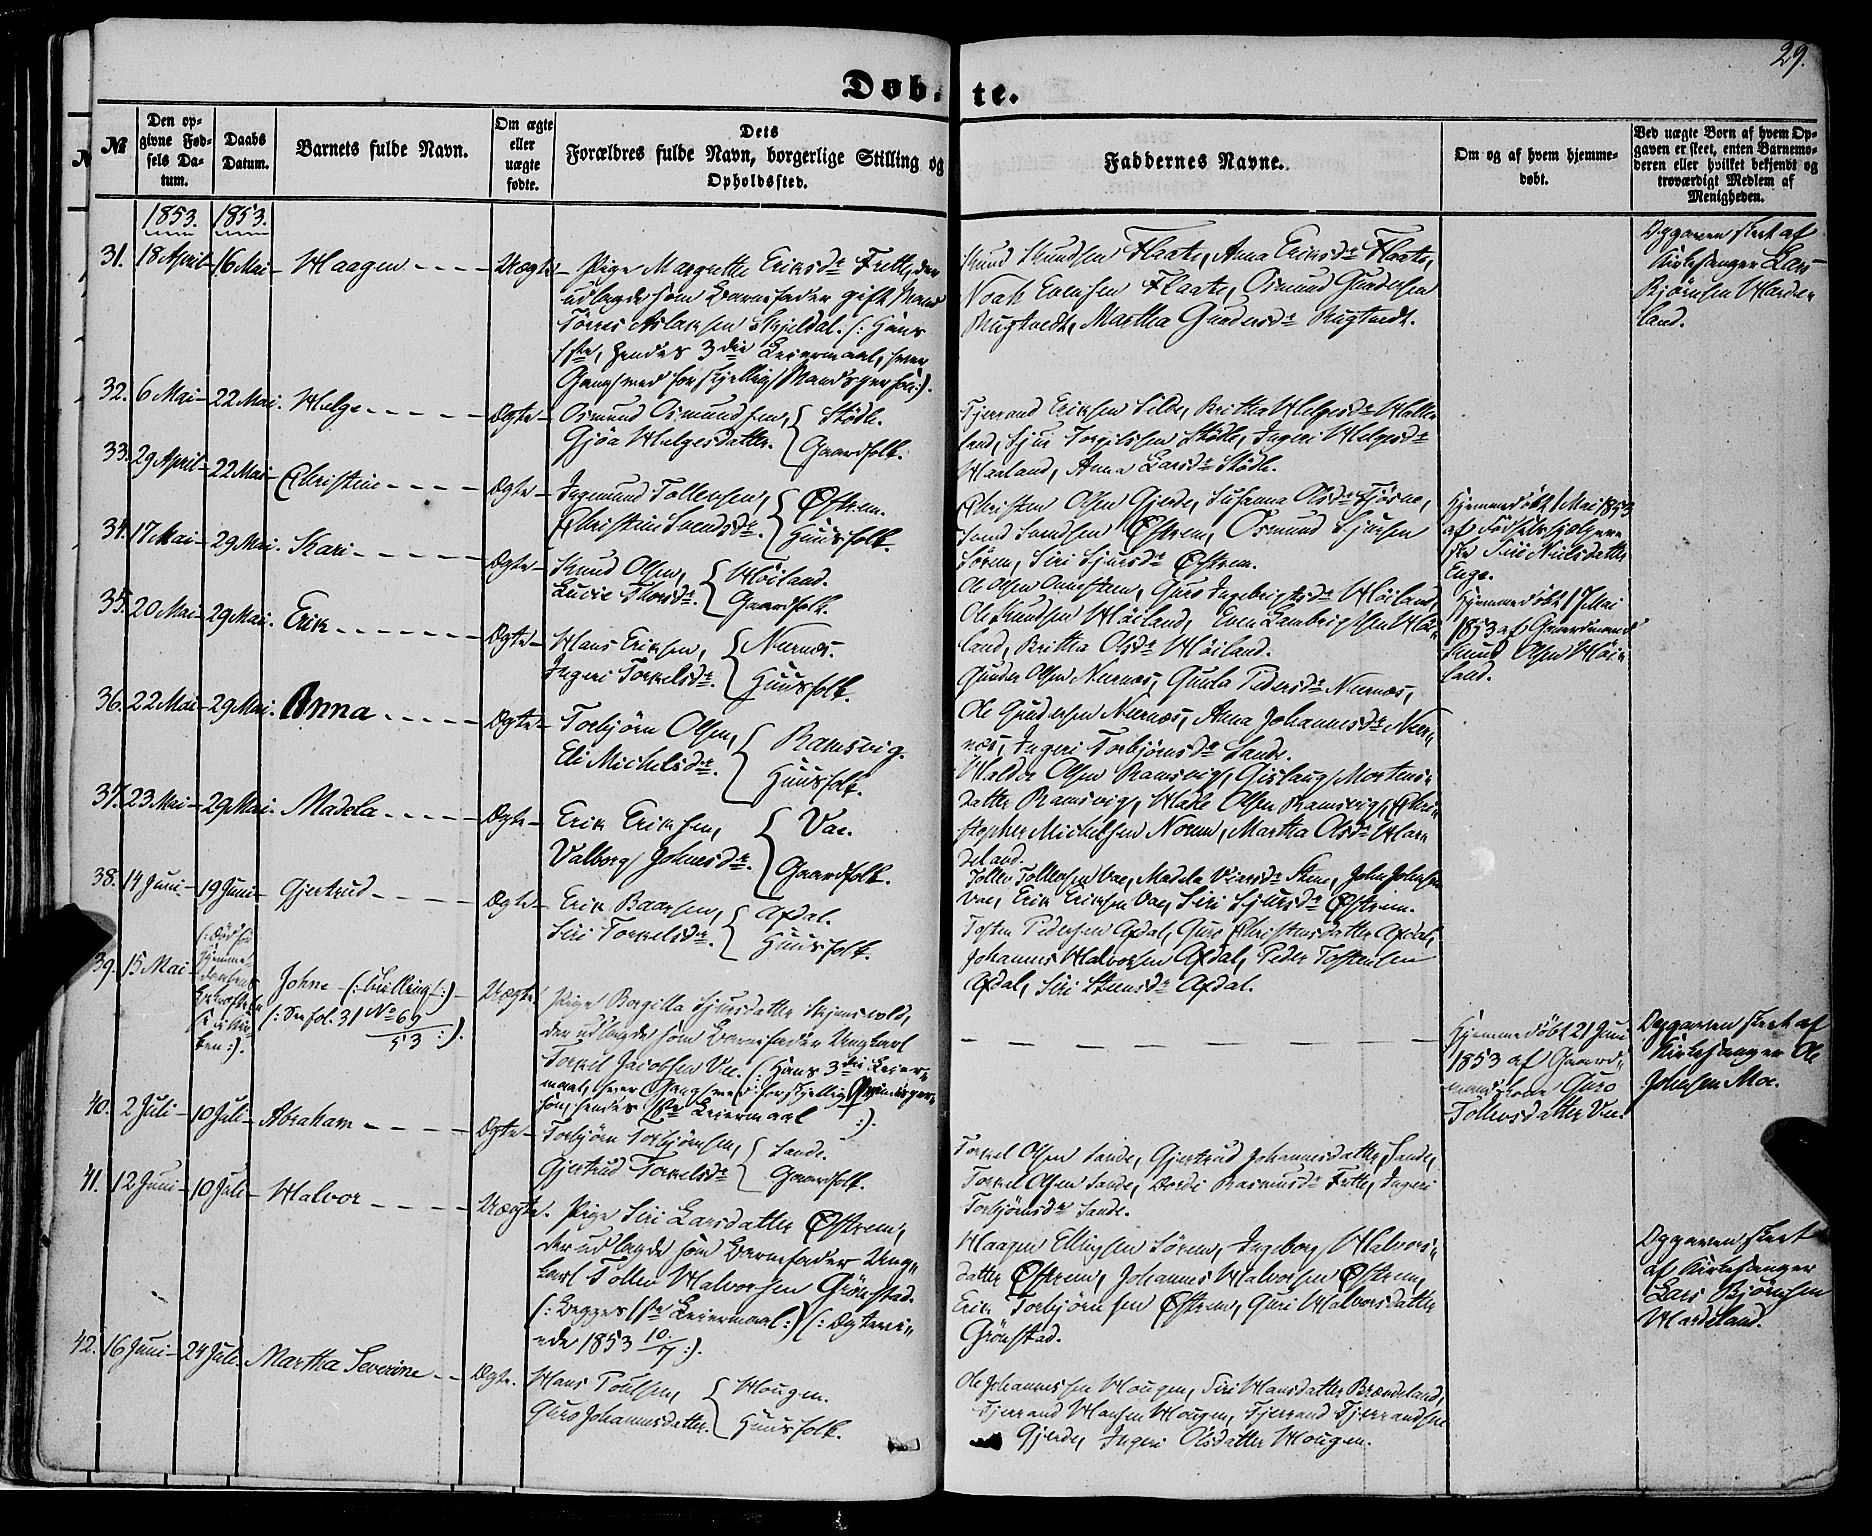 29.
Døbte.
№
Den opgivne Fødsels Datum.
Daabs Datum.
Barnets fulde Navn.
Om ægte eller uægte fødte.
Dets Forældres fulde Navn, borgerlige Stilling og Opholdssted.
Faddernes Navne.
Om og af hvem hjemmedøbt.
Ved uægte Børn af hvem Opgaven er skeet, enten Barnemoderen eller hvilket bekjendt og troværdigt Medlem af Menigheden.
1853. 1853.
31. 18 April 16 Mai Haagen Uægte
Pige Margrethe Eriksdr Frette, der
udlagde som Barnefader gift Mand
Tørris Aslaksen Skjeldal. (: Hans
1ste, hendes 3die Leiermaal, hver
Gang med forskjellig Mandsperson :).
Knud Knudsen Flaate, Anna Eriksdr Flaate,
Noah Evensen Flaate, Osmund Gundersen
Rugtvedt, Martha Gundersdr Rugtvedt.
Opgaven skeet af
Kirkesanger Lars
Bjørnsen Harde-
land.
32. 6 Mai 22 Mai. Helge Ægte
Osmund Osmundsen, Støle.
Gjøa Helgesdatter. Gaardfolk.
Tjerrand Eriksen Silde, Britha Helgesdr Hatte
land, Sjur Torgilssen Støle, Ingeri Helgesdr
Haaland, Anna Larsdr Støle.
33. 29 April 22 Mai Christine Ægte
Ingemund Tollevsen, Østrem.
Christine Svendsdr. Huusfolk.
Christen Olsen Gjerde, Susanna Olsdr Fjøsne,
Svend Svendsen Østrem, Osmund Sjursen
Sørem, Siri Sjursdr Østrem.
Hjemmedøbt 1 Mai 1853
af Fødselshjelpers
ke Siri Nielsdatter
Enge.
34. 17 Mai 29 Mai. Kari Ægte
Knud Olsen, Høiland.
Lucie Thorsdr. Gaardfolk.
Ole Olsen, Guro Ingebrigtsdr Høiland,
Ole Knudsen Høiland, Even Lambrigtsen Høi-
land, Britha Olsdr Høiland.
Hjemmedøbt 17 Mai
1853 af Gaardmand
Knud Olsen Høi-
land.
35. 20 Mai 29 Mai. Erik Ægte
Hans Eriksen, Nernæs.
Ingeri Torkelsdr. Huusfolk.
Gunder Olsen Nernæs, Gunla Pedersdr Nernæs,
Ole Gundersen Nernæs, Anna Johannesdr Ner-
næs, Ingeri Torbjørnsdr Sande.
36. 22 Mai 29 Mai. Anna Ægte
Torbjørn Olsen, Ramsvig.
Eli Michelsdr. Huusfolk.
Halder Olsen Ramsvig, Gislaug Mortens-
datter Ramsvig, Olsen Ramsvig, Chri-
stopher Michelsen Norem, Martha Olsdr Har-
deland.
37. 23 Mai 29 Mai. Madela Ægte
Erik Eriksen, Vae.
Valborg Johnesdr. Gaardfolk.
Tollev Tollevsen Vae, Madela Steene, John Johnsen
Vae, Erik Eriksen Vae, Siri Sjursdr Østrem.
38. 14 Juni 19 Juni Gjertrud Ægte
Erik Baarsen, Axdal.
Siri Torkelsdr. Huusfolk.
Tosten Pedersen Axdal, Guro Christensdatter Axdal,
Johannes Halvorsen Axdal, Peder Tostensen
Axdal, Siri Steensdr Axdal.
39. 15 Mai
Johne (: Tvilling :)
(: See fol. 31 No 69/53 :).
Uægte
Pige Borgilla Sjursdatter Stejensvold,
der udlagde som Barnefader Ungkarl
Torkil Jacobsen Vee. (: Hans 3die Leier-
maal, hver Gang med forskjellig Qvindesper-
son, hendes 1ste Leiermaal :).
Hjemmedøbt 21 Juni
1853 af Gaard-
mandskone Guro
Tollevsdatter Vee.
Opgaven skeet af
Kirkesanger Ole
Johnsen Moe.
40. 2 Juli 10 Juli Abraham Ægte
Torbjørn Torbjørnsen, Sande.
Gjertrud Torkelsdr Gaardfolk.
Torkel Olsen Sande, Gjertrud Johannesdatter Sande,
Torkel Olsen Sande, Rasmusdr Frette, Ingeri
Torbjørnsdr Sande.
41. 12 Juni 10 Juli Halvor Uægte.
Pige Siri Larsdatter Østrem,
der udlagde som Barnefader Ung-
karl Tollev Halvorsen Grønstad.
(: Begges 1ste Leiermaal :) (: Ægtevi-
ede 1853 10/7 :).
Haagen Ellingsen Sørem, Ingeborg Halvors-
datter Østrem, Johannes Halvorsen Østrem,
Erik Torbjørnsen Østrem, Guri Halvorsdatter
Grønstad.
Opgaven skeet
af Kirkesanger
Lars Bjørnsen
Hardeland.
42. 16 Juni 24 Juli Martha Severine Ægte.
Hans Poulsen, Hougen.
Guro Johannesdatter. Huusfolk.
Ole Johannessen Hougen, Siri Hansdatter Brændeland,
Tjerrand Hansen Hougen, Tjerrand Tjerrandsen
Gjerde, Ingeri Olsdatter Hougen.